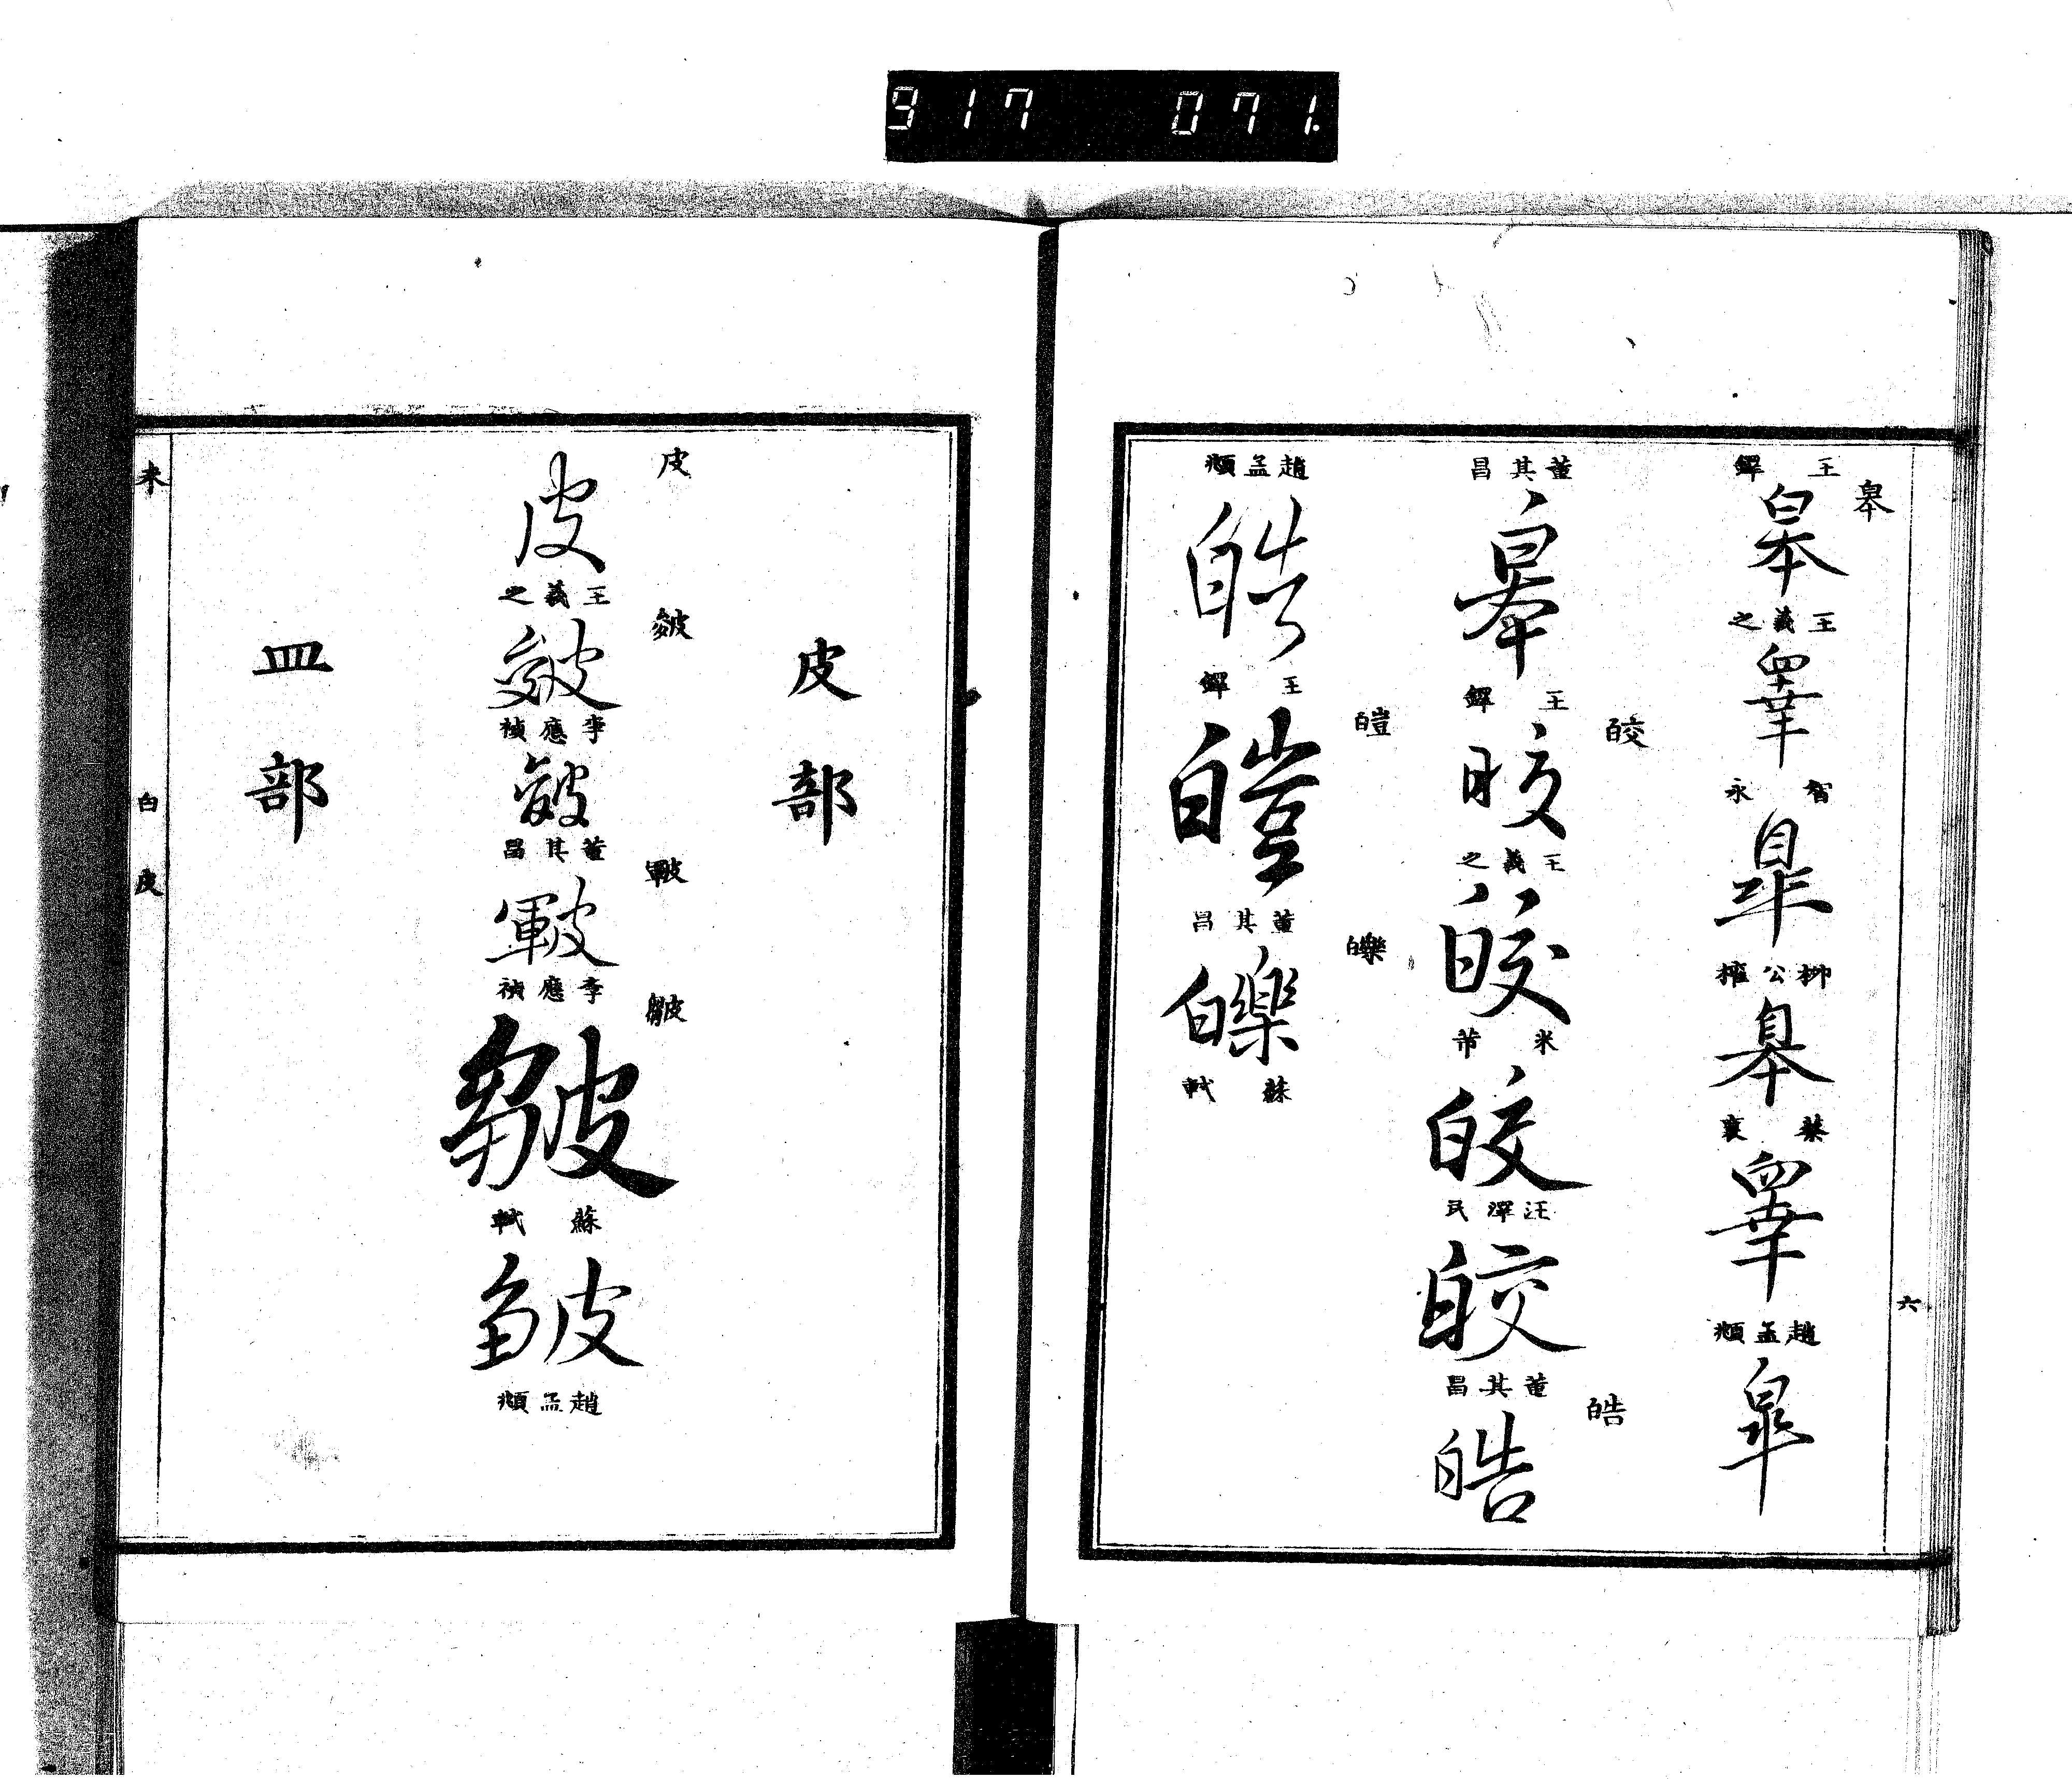 917 071.
六
皋
王鐸
皋
王羲之
睾
智永
皐
柳公權
皋
蔡襄
睾
趙孟頫
皐
董其昌
皋
王鐸
皎
皎
王羲之
皎
米芾
皎
汪澤民
皎
董其昌
皓
皓
趙孟頫
皓
王鐸
皚
皚
董其昌
皪
皪
蘇軾
皮部
皮
皮
王羲之
李應禎
董其昌
皸
皸
李應禎
皺
皺
蘇軾
皺
趙孟頫
皿部
未
白
皮